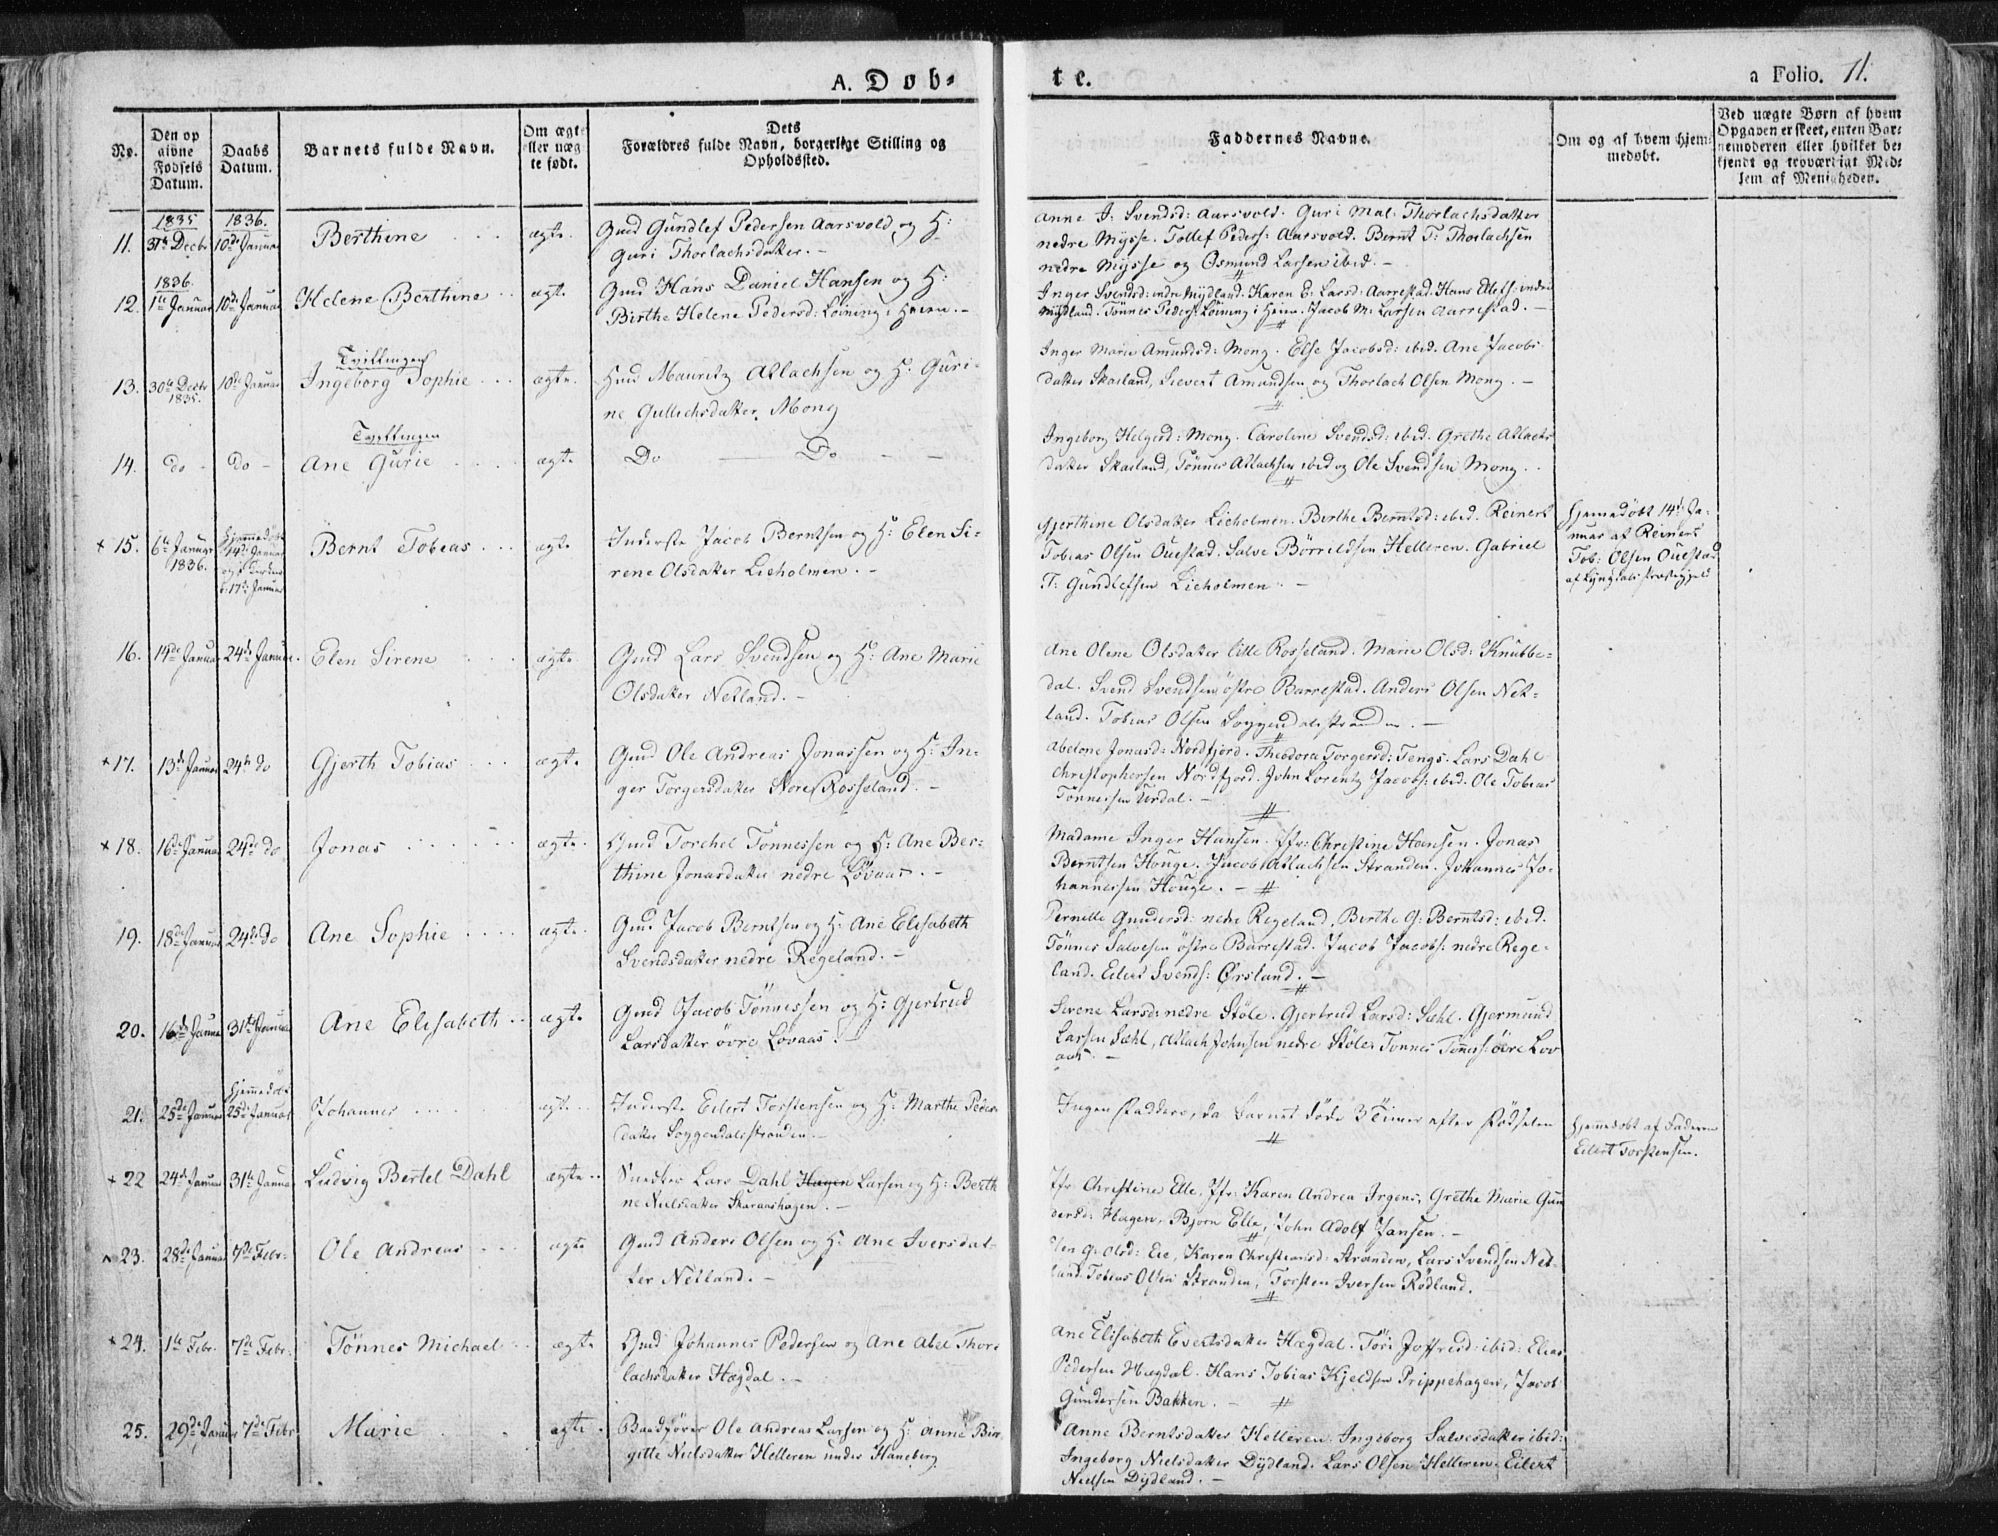 A. Döb-
te.
a Folio. 11.
No.
Den op
givne
Fødsels
Datum.
Daabs
Datum.
Barnets fulde Navn.
Om ægte
eller uæg
te født.
Dets
Forældres fulde Navn, borgerlige Stilling og
Opholdssted.
Faddernes Navne.
Om og af hvem hjem-
medøbt.
Ved uægte Børn af hvem
Opgaven er skeet, enten Bar-
nemoderen eller hvilket be-
kjendt og troværdigt Med-
lem af Menigheden.
11.
1835
31te Decbr
1836.
10de Januar
Berthine
ægte.
Gmd Gundlef Pedersen Aarsvold og H:
Guri Thorlachsdatter. -
Anne J: Svendsd: Aarsvold. Guri Mal: Thorlachsdatter
nedre Mysse. Tollef Peders: Aarsvold. Bernt T: Thorlachsen
nedre Mysse og Osmund Larsen ibid. -
12.
1836.
1te Januar
10de Januar
Helene Berthine
ægte
Gmd Hans Daniel Hansen og H:
Birthe Helene Pedersd: Løining i Heien. -
Inger Svendsd: indre Mydland. Karen E: Larsd: Aarrestad. Hans Ellefs: indre
Mydland. Tönnes Peders: Løining i Heien. Jacob M: Larsen Aarrestad. -
13.
30te Decbr
1835.
10de Januar
Tvillingen
Ingeborg Sophie
ægte.
Hmd Mauritz Atlachsen og H: Guri-
ne Gullichsdatter Mong
Inger Marie Amundsd: Mong. Else Jacobsd: ibid. Ane Jacobs
datter Skarland, Sievert Amundsen og Thorlach Olsen Mong. -
14.
do -
do -
Tvillingen
Ane Gurie
ægte
Do - Do - -
Ingeborg Helgesd: Mong. Caroline Svendsd: ibid. Grethe Atlachs
datter Skarland, Tönnes Atlachsen ibid og Ole Svendsen Mong.
× 15.
6te Januar
1836.
hjemmedöbt
14de Januar
17de Januar
Bernt Tobias
ægte
Inderste Jacob Berntsen og H: Elen Si-
rene Olsdatter Lieholmen. -
Gjerthine Olsdatter Lieholmen. Birthe Berntsd: ibid. Reinert
Tobias Olsen Ouestad. Salve Börrildsen Helleren. Gabriel
T: Gundlefsen Lieholmen. -
hjemedöbt 14de Ja-
nuar af Reinert
Tob: Olsen Ouestad
af Lyngdals Præstegjeld
16.
14de Januar
24de Januar.
Elen Sirene
ægte.
Gmd Lars Svendsen og H: Ane Marie
Olsdatter Netland. -
Ane Olene Olsdatter lille Rosseland. Marie Olsd: Knubbe-
dal. Svend Svendsen östre Barrestad. Anders Olsen Net-
land. Tobias Olsen Soggendalsstranden. -
× 17.
13de Januar
24de do
Gjerth Tobias
ægte.
Gmd Ole Andreas Jonassen og H: In-
ger Torgersdatter Store Rosseland. -
Abelone Jonasd: Nordfjord. Theodora Torgersd: Tengs. Lars Dahl
Christophersen Nordfjord. John Lorentz Jacobs: ibid. Ole Tobias
Tönnessen Urdal. -
× 18.
16de Januar
24de do
Jonas
ægte.
Gmd Torchel Tönnessen og H: Ane Ber-
thine Jonasdatter nedre Lövaas. -
Madame Inger Hansen. Jfr: Christine Hansen. Jonas
Berntsen Houge. Jacob Atlachsen Stranden. Johannes Jo-
hannessen Houge. -
19.
18de Januar
24de do
Ane Sophie
ægte.
Gmd Jacob Berntsen og H: Ane Elisabeth
Svendsdatter nedre Regeland. -
Pernille Gundersd: nedre Regeland. Birthe G: Berntsd: ibid.
Tönnes Salvesen östre Barrestad. Jacob Jacobs: nedre Rege-
land. Eilert Svends: Ørsland. -
20.
16de Januar
31te Januar
Ane Elisabeth
ægte
Gmd Jacob Tönnessen og H: Gjertrud
Larsdatter övre Lovaas. -
Sirene Larsd: nedre Stöle. Gjertrud Larsd: Sæhl. Gjermund
Larsen Sæhl, Atlach Johnsen nedre Stöle. Tonnes Tönness: övre Lov
aas. -
21.
25de Januar
hjemedöbt
25de Januar
Johannes
ægte
Inderste Eilert Torstensen og H: Marthe Peders
datter Soggendalsstranden. -
Ingen Faddere, da Barnet döde 3 Timer efter Födselen
hjemedöbt af Faderen
Eilert Torstensen.
× 22
24de Januar
31te Januar
Ludvig Bertel Dahl
ægte
Snedker Lars Dahl Hagen Larsen og H: Berth
ne Nielsdatter Skaraashagen. -
Jfr: Christine Elle, Jfr: Karen Andrea Irgens, Grethe Marie Gun
dersd: Hagen, Bjørn Elle, John Adolf Jansen. -
× 23.
28de Januar
7de Febr.
Ole Andreas
ægte
Gmd Anders Olsen og H: Ane Iversdat-
ter Netland. -
Elen G: Olsd: Eie, Karen Christiansd: Stranden, Lars Svendsen Net-
land. Tobias Olsen Stranden, Torsten Iversen Rödland.
× 24.
1te Febr.
7de Febr.
Tönnes Michael
ægte
Gmd Johannes Pedersen og Ane Abel Thor-
lachsdatter Hægdal. -
Ane Elisabeth Evertsdatter Hægdal. Töri Joffresd: ibid: Elias
Pedersen Hægdal. Hans Tobias Kjeldsen Prippehagen, Jacob
Gundersen Bakken. -
25.
29de Januar
7de Febr
Marie
ægte
Baadförer Ole Andreas Larsen og H: Anne Bir
gitte Nielsdatter Helleren under Haneberg
Anne Berntsdatter Helleren. Ingeborg Salvesdatter ibid:
Ingeborg Nielsdatter Dydland. Lars Olsen Helleren. Eilert
Nielsen Dydland. -